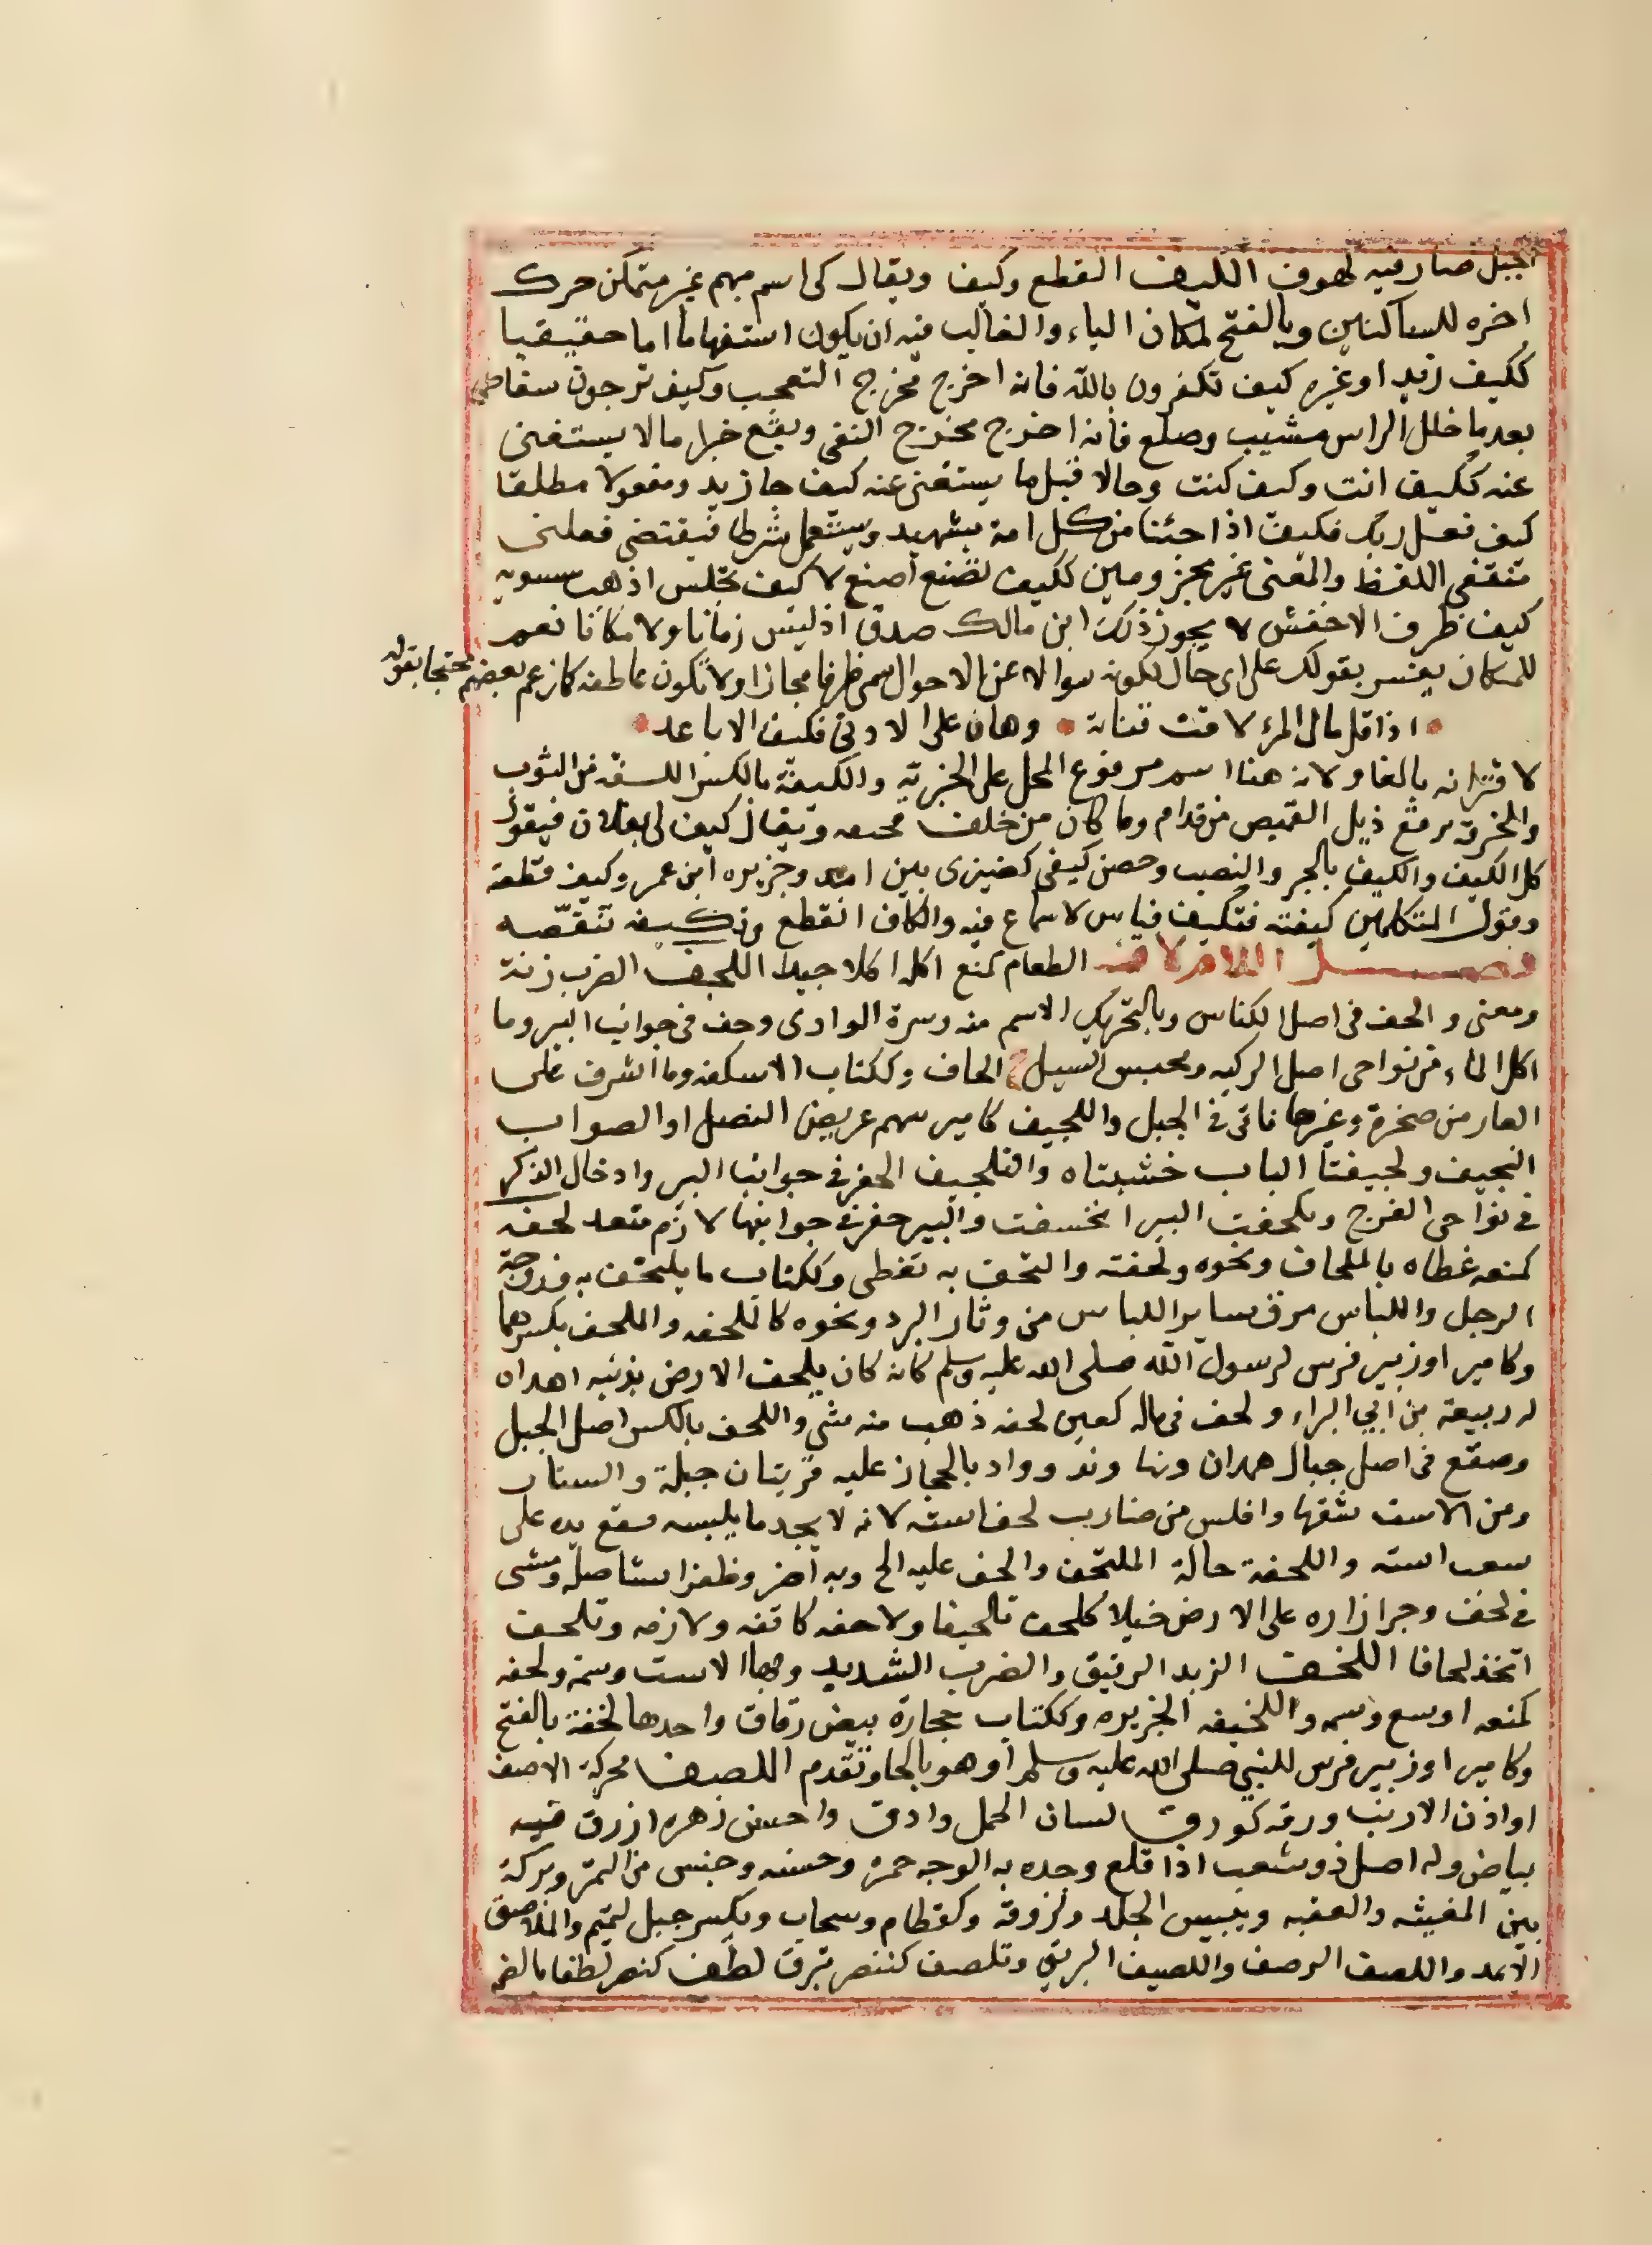 الجبل صار فيه كهوف الكيف القطع وكيف ويقال كى اسم مبهم غير متمكن حرك
اخره للساكنين وبالفتح لمكان الياء والغالب فيه ان يكون استفهاما اما حقيقيا
ككيف زيد او غيره كيف تكفرون بالله فانه اخرج مخرج التعجب وكيف ترجون سقاطى
بعدما خلل الراس مشيب وصلع فانه اخرج مخرج النفى ويقع خبرا مالا يستغنى
عنه ككيف انت وكيف كنت وحالا قبل ما يستغنى عنه كيف جا زيد ومفعولا مطلقا
كيف فعل ربك فكيف اذا جئنا من كل امة بشهيد ويستعمل شرطا فيقتضى فعلين
متفقى اللفظ والمعنى غير مجزومين ككيف تصنع اصنع لا كيف تجلس اذهب سيبويه
كيف ظرف الاخفش لا يجوز ذلك ابن مالك صدق اذ ليس زمانا ولا مكانا نعم
للمكان يفسر بقولك على اى حال لكونه سوالا عن الاحوال سمى ظرفا مجازا ولا تكون عاطفه كما زعم بعضهم محتجا بقوله
اذا قل مال المرء لانت قناته وهان على الادنى فكيف الاباعد
لاقترانه بالفا ولانه هنا اسم مرفوع المحل على الخبرية والكيفة بالكسر الكسفه من الثوب
والخرقة ترقع ذيل القميص من قدام وما كان من خلف فحيفه ويقال كيف لى بفلان فيقول
كل الكيف والكيف بالجر والنصب وحصن كيفى كضيزى بين امد وجزيره ابن عمر وكيف قطعه
وقول المتكلمين كيفته فتكيف قياس لا سماع فيه وانكاف انقطع وتكيفه تنقصه
فصل اللام لاف الطعام كمنع اكله اكلا جيدا اللجف الضرب زنة
ومعنى والحفر فى اصل الكناس وبالتحريك الاسم منه وسرة الوادى وحفر فى جوانب البير وما
اكل الماء من نواحى اصل الركيه ومحبس السيل ج الجاف وككتاب الاسكفه وما اشرف على
الغار من صخرة وغيرها ناتى فى الجبل واللجيف كامير سهم عريض النصل او الصواب
النجيف ولجيفتا الباب خشبتاه والتلجيف الحفر فى جوانب البير وادخال الذكر
فى نواحى الفرج وتلجفت البير انخسفت والبير حفر فى جوانبها لازم متعد لحفه
كمنعه غطاه بالملحاف ونحوه ولحفته والتحف به تغطى وككتاب ما يلتحف به وزوجة
الرجل واللباس فوق ساير اللباس من دثار البرد ونحوه كالملحفه والملحف بكسرهما
وكامير او زبير فرس لرسول الله صلى الله عليه وسلم كانه كان يلحف الارض بذنبه اهداه
له ربيعة بن ابي البراء ولحف فى ماله كعنى لحفه ذهب منه شي واللحف بالكسر اصل الجبل
وصقع فى اصل جبال همدان ونهاوند وواد بالحجاز عليه قريتان جبلة والستار
ومن الاست شقها وافلس من ضارب لحف استه لانه لا يجد ما يلبسه فتقع يده على
شعب استه واللحفة حالة الملتحف والحف عليه الح وبه اضر وظفره استاصله ومشى
فى لحف وجر ازاره على الارض خيلا كلحف تلحيفا ولاحفه كانفه ولازمه وتلحف
اتخذ لحافا اللخف الزبد الرقيق والضرب الشديد وبهاء الاست وسمة ولخفه
كمنعه اوسع وسمه واللخيفه الخزيره وككتاب حجارة بيض رقاق واحدها لخفة بالفتح
وكامير او زبير فرس للنبي صلى الله عليه وسلم او هو بالحا وتقدم اللصف محركة الاصف
او اذن الارنب ورقه كورق لسان الحمل وادق واحسن زهره ازرق فيه
بياض وله اصل ذو شعب اذا قلع وحك به الوجه حمره وحسنه وجنس من التمر وبركة
بين المغيثه والعقبه ويبس الجلد ولزوقه وكقطام وسحاب وبكسر جبل لتميم واللاصف
الاثمد واللصف الرصف واللصيف البريق وتلصف كتنصر تبرق لطف كنصر لطفا بالضم